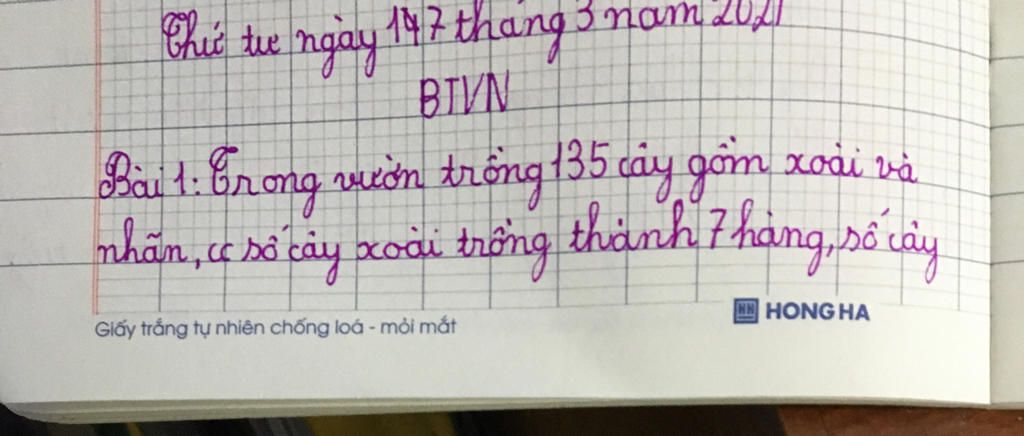 Thứ tư ngày 17 tháng 3 năm 2021
BTVN
Bài 1: Trong vườn trồng 135 cây gồm xoài và
nhãn, số cây xoài trồng thành 7 hàng, số cây
Giấy trắng tự nhiên chống loá - mỏi mắt
HH HONG HA